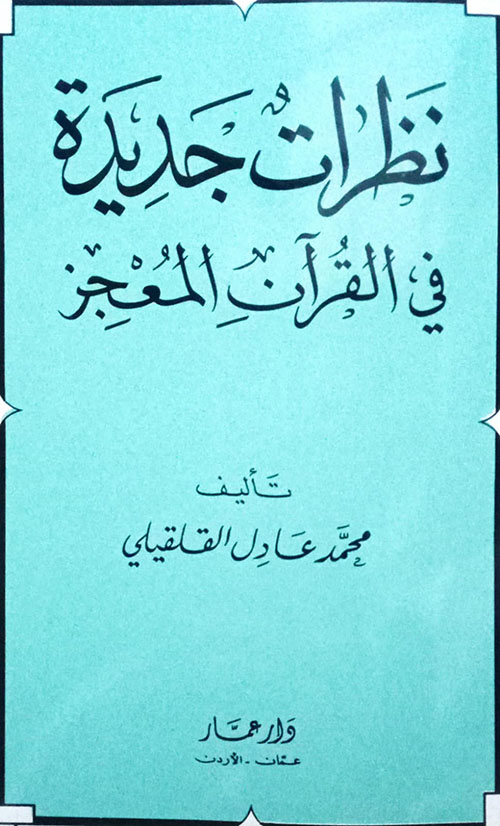 نَظَرَاتٌ جَدِيدَة
في القُرآنِ المُعْجِز
تَأليف
محمَّد عَادِل القلقيلي
دَار عمَّار
عمّان - الأردن